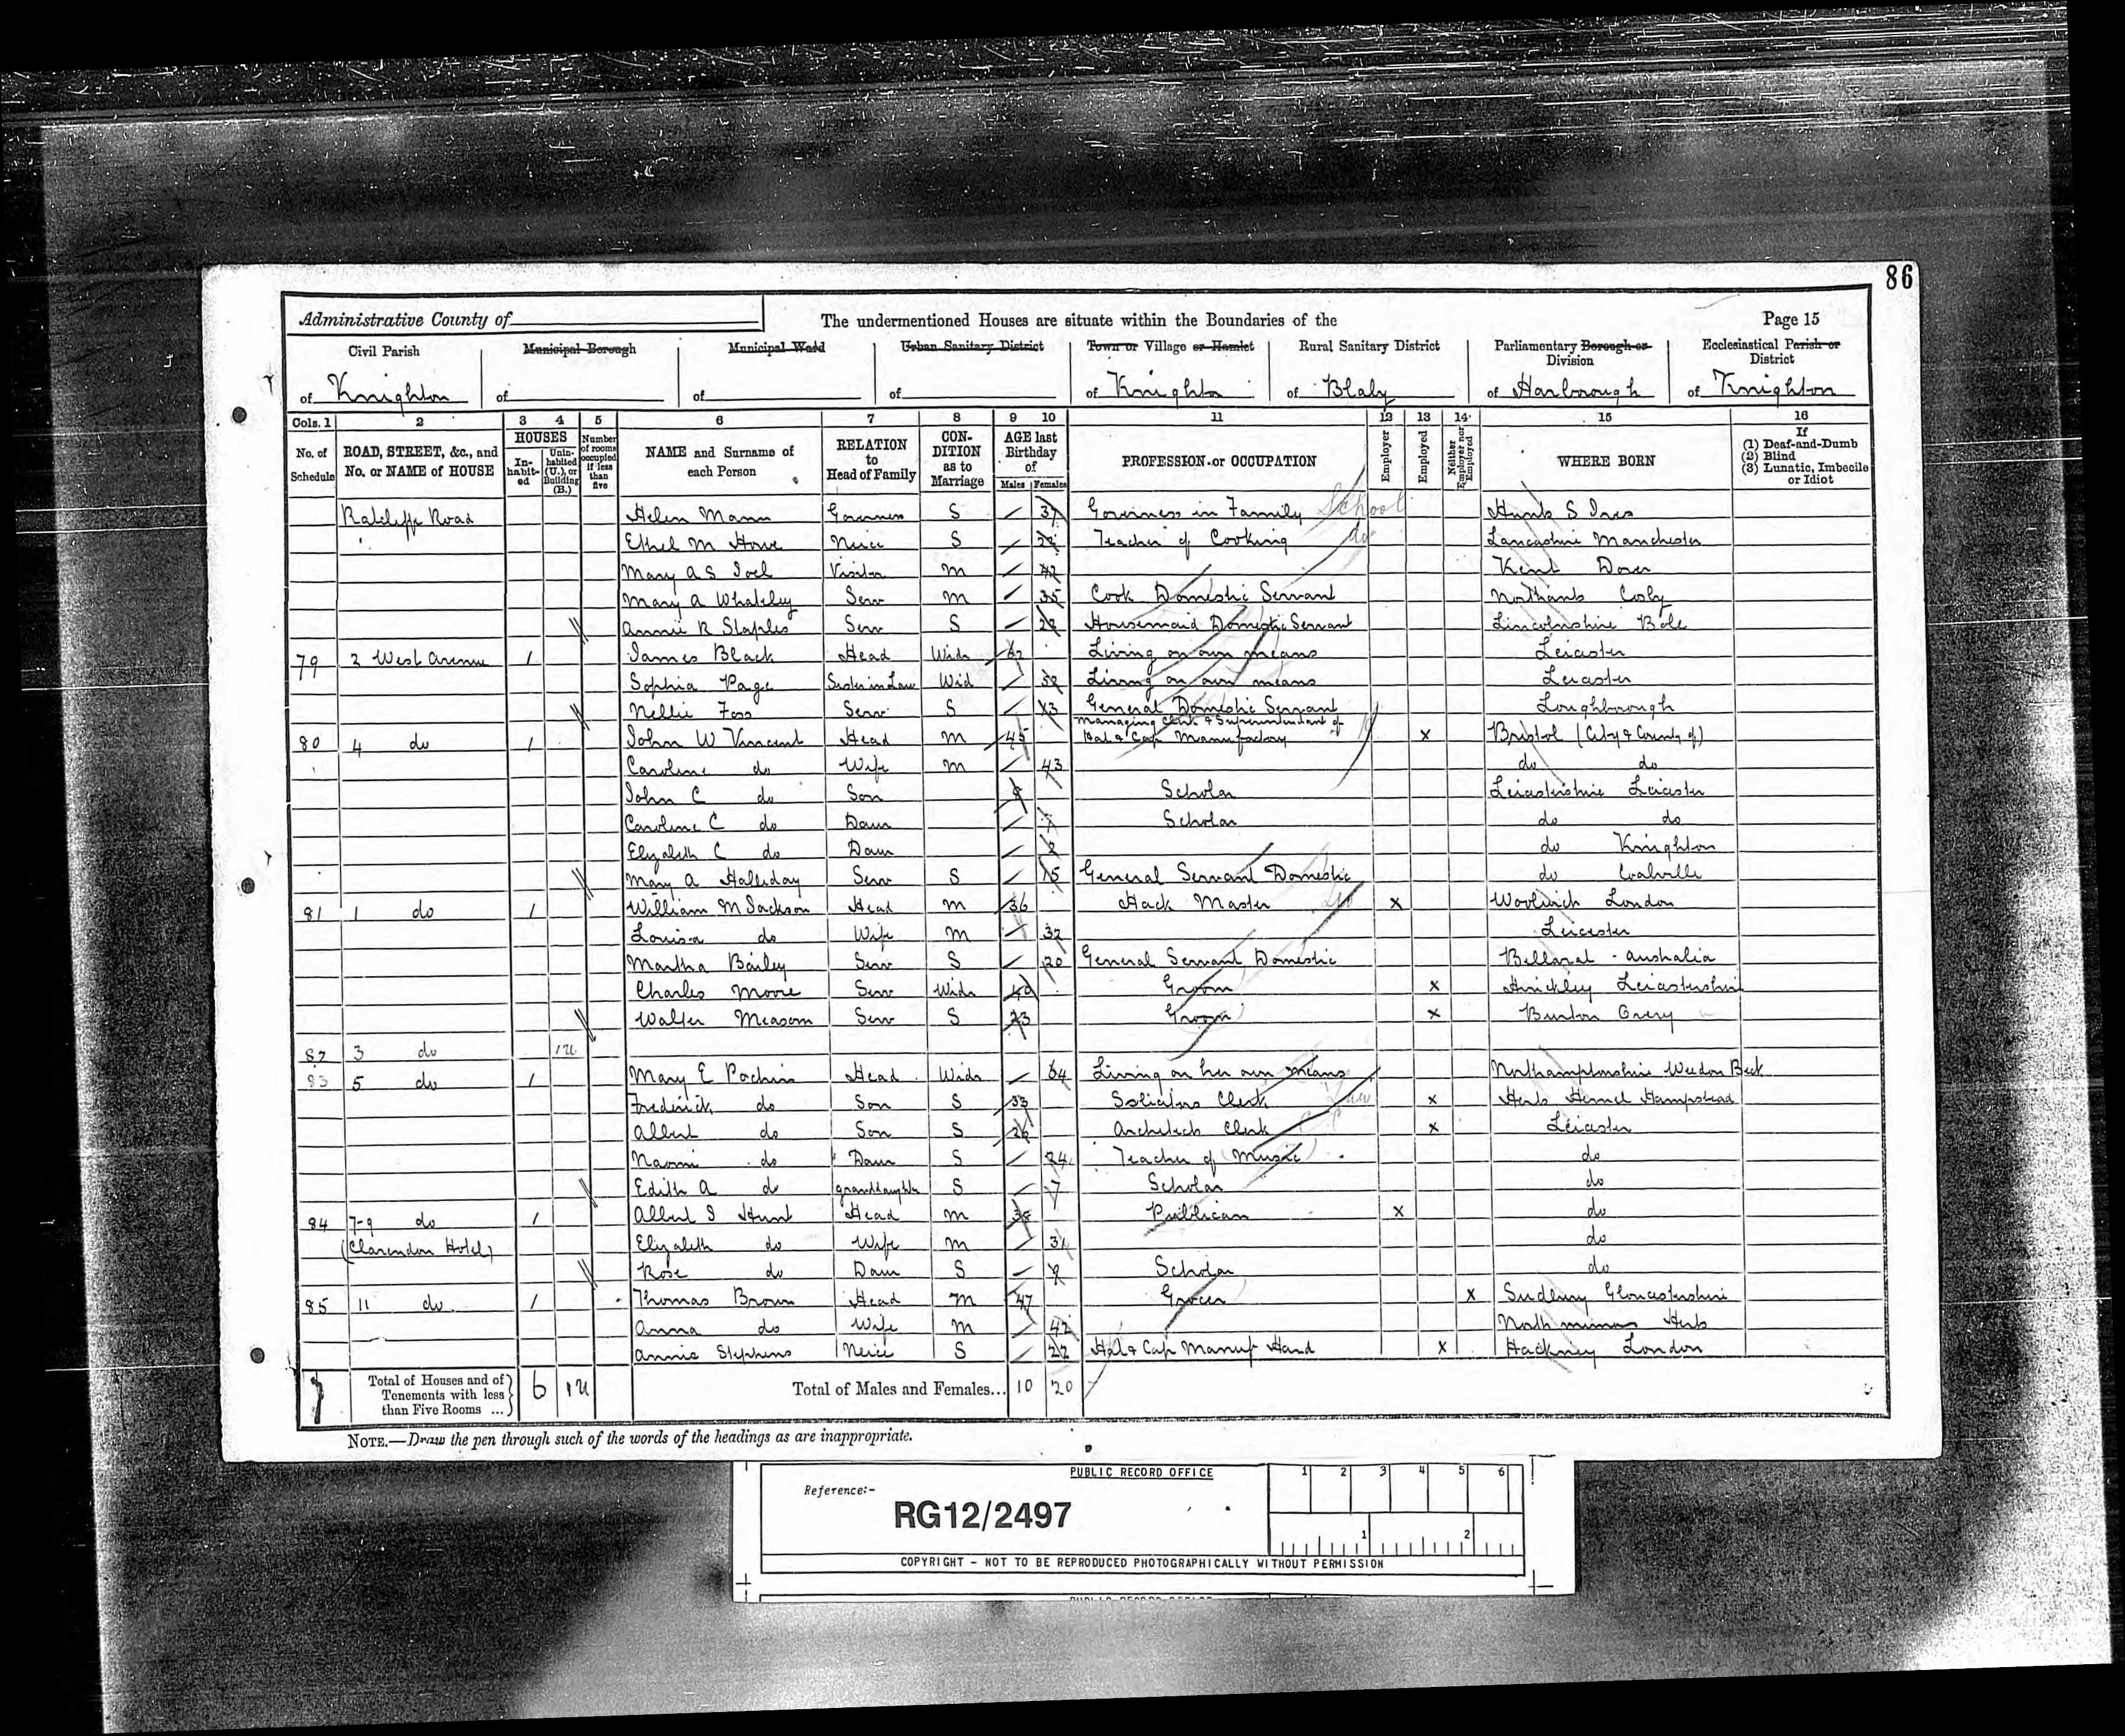 86
Administrative County of The undermentioned Houses are situate within the Boundaries of the Page 15
Civil Parish Municipal Borough Municipal Ward Urban Sanitary District Town or Village or Hamlet Rural Sanitary District Parliamentary Borough or Division Ecclesiastical Parish or District
of Knighton of of of of Knighton of Blaby of Harborough of Knighton
Cols. 1 2 3 4 5 6 7 8 9 10 11 12 13 14 15 16
No. of Schedule ROAD, STREET, &c., and No. or NAME of HOUSE HOUSES In-habit-ed Unin-habited (U.), or Building (B.) Number of rooms occupied if less than five NAME and Surname of each Person RELATION to Head of Family CON-DITION as to Marriage AGE last Birthday of Males Females PROFESSION or OCCUPATION Employer Employed Neither Employer nor Employed WHERE BORN If (1) Deaf-and-Dumb (2) Blind (3) Lunatic, Imbecile or Idiot
Ratcliffe Road Helen Mann Governess S 37 Governess in Family School Hunts S Ives
Ethel M Howe Neice S Teacher of Cooking do Lancashire Manchester
Mary A S Joel Visitor M 42 Kent Dover
Mary A Whateley Serv M 35 Cook Domestic Servant Northants
Annie R Staples Serv S Housemaid Domestic Servant Lincolnshire
79 2 West Avenue 1 James Black Head Widr 62 Living on own means Leicester
Sophia Page Sister in Law Wid Living on own means Leicester
Nellie Foss Serv S General Domestic Servant Loughborough
80 4 do 1 John W Vincent Head M 45 Managing Clerk & Superintendant of Hat & Cap Manufactory x Bristol (City & County of)
Caroline do Wife M 43 do do
John C do Son Scholar Leicestershire Leicester
Caroline C do Daur 7 Scholar do do
Elizabeth C do Daur 2 do Knighton
Mary A Halliday Serv S 15 General Servant Domestic do Coalville
81 1 do 1 William M Jackson Head M 36 Hack Master x Woolwich London
Louisa do Wife M 32 Leicester
Martha Bailey Serv S 20 General Servant Domestic Bellarat - Australia
Charles Moore Serv Widr 40 Groom x Hinckley Leicestershire
Walter Measom Serv S 23 Groom x Burton Overy
82 3 do 1U
83 5 do 1 Mary E Pochin Head Widr 64 Living on her own means Northamptonshire Weedon Beck
Frederick do Son S 33 Solicitors Clerk Law x Herts Hemel Hampstead
Albert do Son S 26 Architects Clerk x Leicester
Naomi do Daur S 24 Teacher of Music do
Edith A do granddaughter S 7 Scholar do
84 7-9 do 1 Albert J Hunt Head M 38 Publican x do
(Clarendon Hotel) Elizabeth do Wife M 31 do
Rose do Daur S Scholar do
85 11 do 1 Thomas Brown Head M 47 Grocer x Sudbury Gloucestershire
Anna do Wife M 42 North mimms Herts
Annie Stephens Neice S 22 Hat & Cap Manuf Hand x Hackney London
7 Total of Houses and of Tenements with less than Five Rooms ... 6 1U Total of Males and Females... 10 20
NOTE.—Draw the pen through such of the words of the headings as are inappropriate.
PUBLIC RECORD OFFICE 1 2 3 4 5 6
Reference:-
RG12/2497
1 2
COPYRIGHT - NOT TO BE REPRODUCED PHOTOGRAPHICALLY WITHOUT PERMISSION